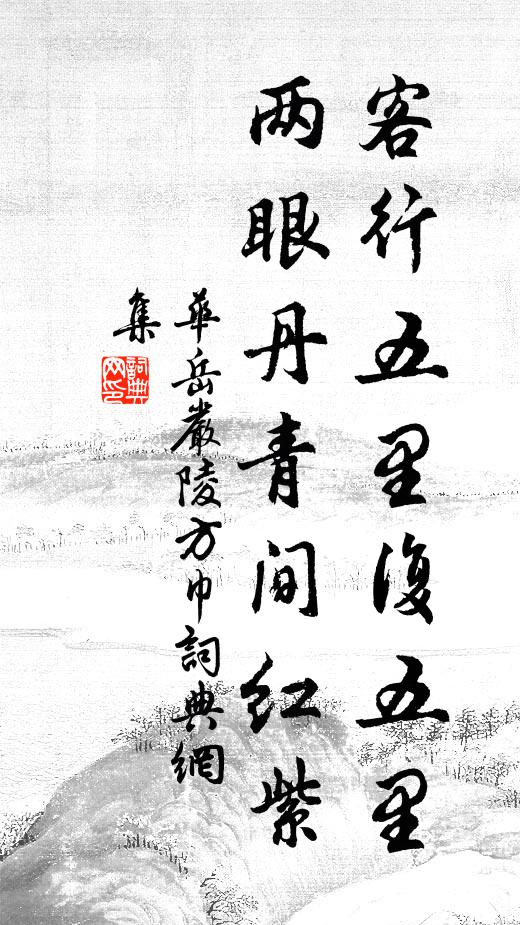 客行五里復五里
两眼丹青间紅紫
華岳嚴陵方巾詞典網
集
詞典
网印